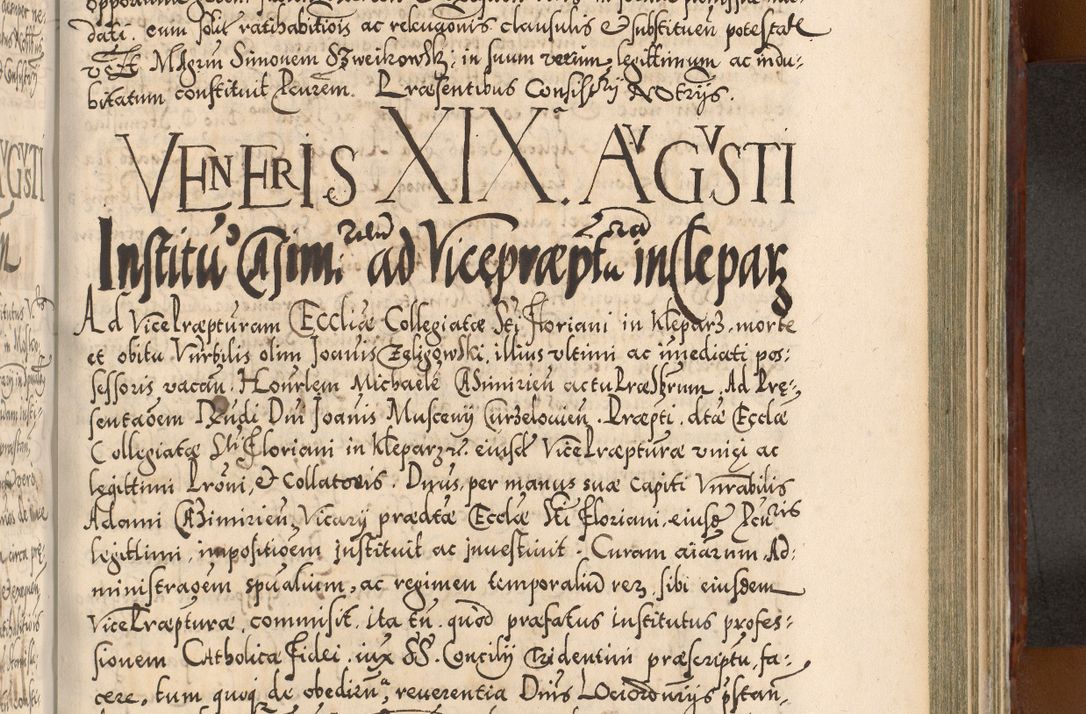 dati. cum solit ratihabitiois ac releuaonis clausulis & substituen potestate
Mgrum Simonem Szweikowsk, in suum verum legittimum ac indu:
bitatum constituit Pcurem. Præsentibus Consistrij Notrijs.
VENERIS XIX.ª AVGVSTI
Institu⁹ Casimi riens ad Vicepræptu ram in Clepar₃
Ad VicePræpturam Ecccliæ Collegiatæ Sti Floriani in Kleparz, morte
et obitu Vnrbilis olim Joanis Zeligowski, illius vltimi ac imediati pos:
sessoris vacan. Honrlem Michaele Casimirien actu Præsbrum. Ad Prę:
sentaoem Rndi Dni Joanis Muscenij Curzelowien. Præpti. dtæ Ecclæ
Collegiatæ Sti Floriani in Kleparz. eiusd VicePræpturæ vnici ac
legittimi Proni, & Collatoris. Dnus, per manus suæ capiti Vnrabilis
Adami Cazimirien, Vicarij prædtæ Ecclæ Sti Floriani, eiusq Pcuris
legitimi, impositioem instituit ac inuestiuit. Curam aiarum, Ad:
ministraoem spualium, ac regimen temporaliu rez, sibi eiusdem
VicePræpturæ, commisit, ita tn quod præfatus institutus profes:
sionem Catholicæ fidei iux SS. Concilij Tridentini præscriptu, fa:
cere, tum quoq de obedien, reuerentia Dnis Lociordinrijs pstan,